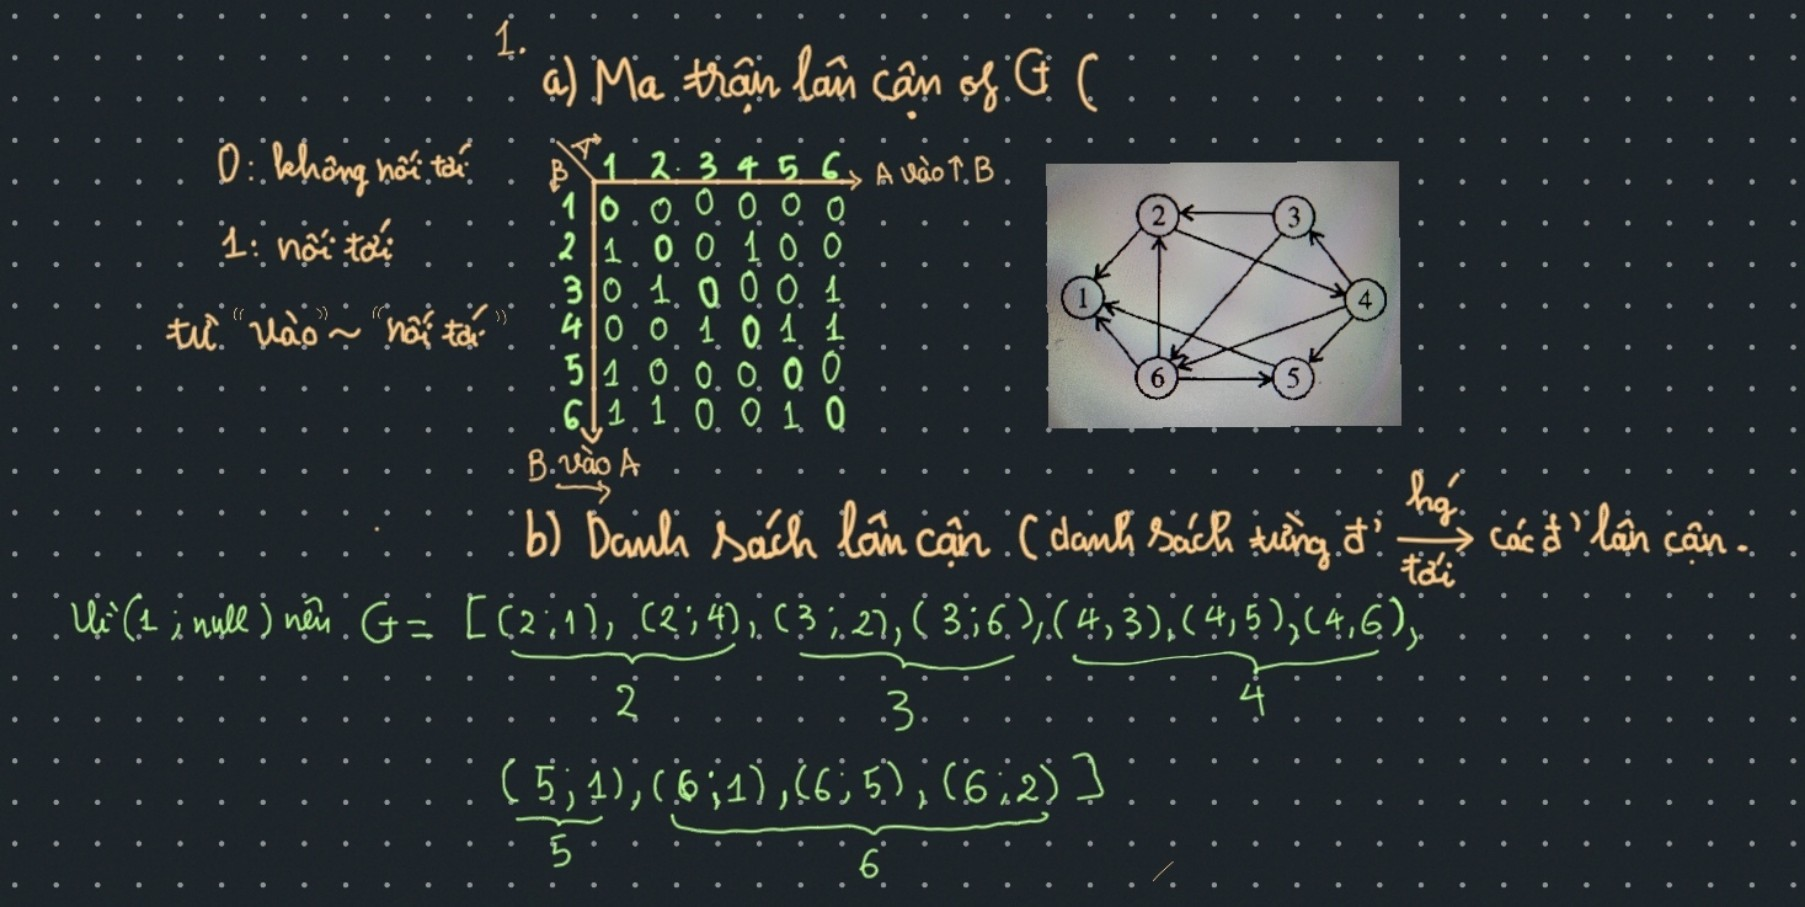 1.
a) Ma trận lân cận of G (
0: không nối tới
1: nối tới
từ "vào" ~ "nối tới"
A
B
1 2 3 4 5 6
A vào ↑ B
1 0 0 0 0 0 0
2 1 0 0 1 0 0
3 0 1 0 0 0 1
4 0 0 1 0 1 1
5 1 0 0 0 0 0
6 1 1 0 0 1 0
B vào A
2 3
1 4
6 5
b) Danh sách lân cận (danh sách từng đ' → các đ' lân cận.
tới
Vì (1 ; null) nên G = [(2;1), (2;4), (3;2), (3;6), (4,3), (4,5), (4,6),
2 3 4
(5;1), (6;1), (6;5), (6;2)]
5 6